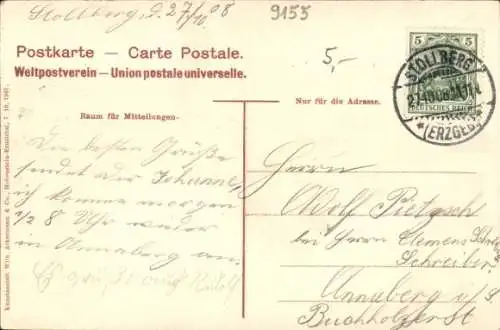 Stollberg, d. 27/10 08
9155
Postkarte — Carte Postale.
Weltpostverein — Union postale universelle.
5,-
5 5
DEUTSCHES REICH
STOLLBERG
27.10.08
*(ERZGEB.)*
Nur für die Adresse.
Raum für Mitteilungen.
Die besten Grüße
sendet der Johanne,
ich komme morgen
1/2 8 Uhr wieder
in Annaberg an.
Es grüßt auch Rudolf
Herrn
Adolf Pietzsch
bei Herrn Clemens
Schreiber,
Annaberg i/S
Buchholzerst
Kunstanstalt Wilh. Ackermann & Co., Hohenstein-Ernstthal, 7. 10. 1907.